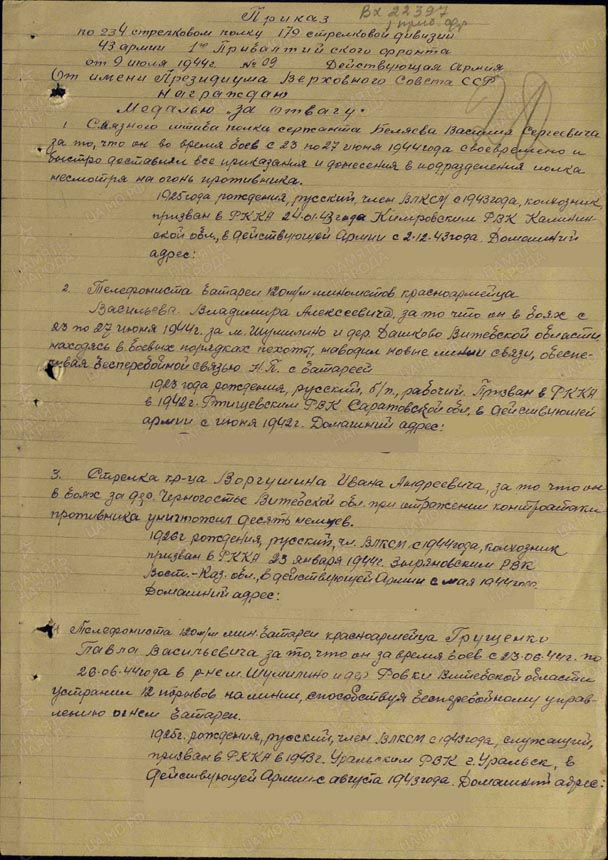 Приказ
Вх 22397
по 234 стрелковом полку 179 стрелковой дивизии
43 армии 1го Прибалтийского фронта
от 9 июля 1944г. № 09 Действующая Армия
От имени Президиума Верховного Совета ССР
Награждаю
Медалью "за отвагу"
1 Связного штаба полка сержанта Беляева Василия Сергеевича
за то, что он во время боев с 23 по 27 июня 1944 года своевремено и
быстро доставлял все приказания и донесения в подразделения полка
несмотря на огонь противника.
1925 года рождения, русский, член ВЛКСМ с 1943 года, колхозник,
призван в РККА 24-01-43 года Кимровским РВК Калинин-
ской обл., в Действующей Армии с 2-12-43 года. Домашний
адрес:
2. Телефониста батареи 120 м/м минометов красноармейца
Васильева Владимира Алексеевича, за то что он в боях с
23 по 27 июня 1944г. за м. Шумилино и дер. Дашково Витебской области
находясь в боевых порядках пехоты, наводил новые линии связи, обеспе-
чивая бесперебойной связью Н.П. с батареей
1923 года рождения, русский, б/п., рабочий. Призван в РККА
в 1942г. Ртищевским РВК Саратовской обл., в действующей
армии с июня 1942г. Домашний адрес:
3. Стрелка кр-ца Воргушина Ивана Андреевича, за то что он
в боях за дер. Черногостье Витебской обл. при отражении контратаки
противника уничтожил десять немцев.
1926г рождения, русский, чл. ВЛКСМ с 1944 года, колхозник
призван в РККА 23 января 1944г. Зыряновским РВК
Вост.-Каз. обл., в действующей Армии с мая 1944 года
Домашний адрес:
4 Телефониста 120 м/м мин. батареи красноармейца Грущенко
Павла Васильевича за то, что он за время боев с 23.06.44г. по
26.06.44 года в р-не м. Шумилино и дер. Ровки Витебской области
устранил 12 порывов на линии, способствуя бесперебойному управ-
лению огнем батареи.
1925г. рождения, русский, член ВЛКСМ с 1943 года, служащий,
призван в РККА в 1943г. Уральским РВК г. Уральск, в
Действующей Армии с августа 1943 года. Домашний адрес: